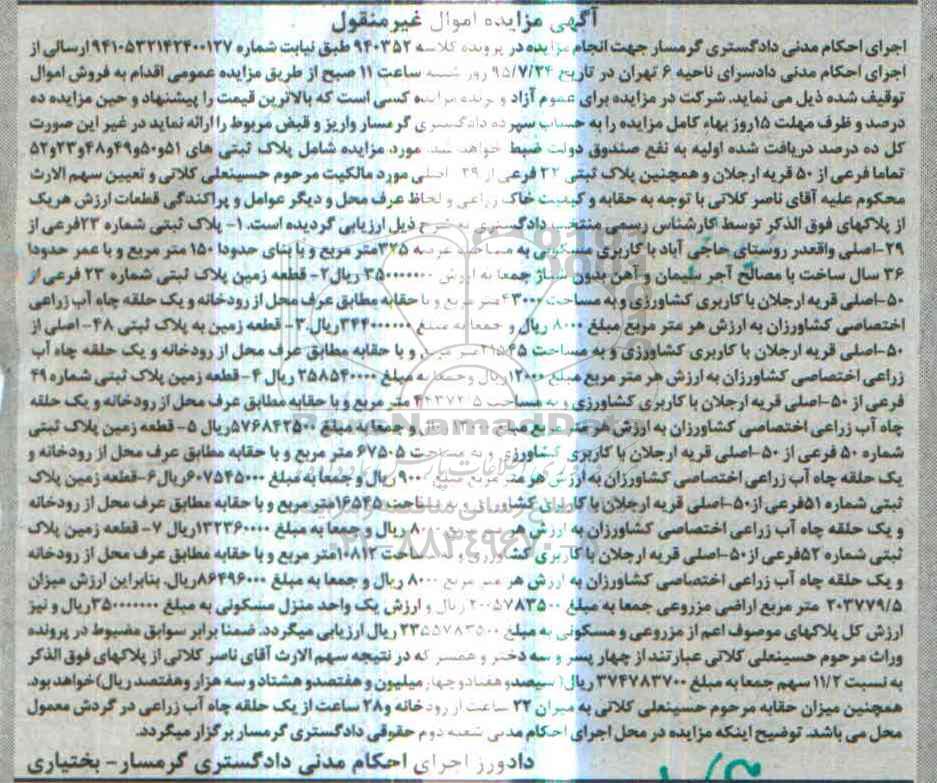 آگهی مزایده اموال غیر منقول
اجرای احکام مدنی دادگستری گرمسار جهت انجام مزایده در پرونده کلاسه ۹۴۰۳۵۲ طبق نیابت شماره ۹۴۱۰۵۳۲۱۴۲۴۰۰۱۲۷ ارسالی از
اجرای احکام مدنی دادسرای ناحیه ۶ تهران در تاریخ ۹۵/۷/۲۴ روز شنبه ساعت ۱۱ صبح از طریق مزایده عمومی اقدام به فروش اموال
توقیف شده ذیل می نماید. شرکت در مزایده برای عموم آزاد و برنده مزایده کسی است که بالاترین قیمت را پیشنهاد و حین مزایده ده
درصد و ظرف مهلت ۱۵روز بهاء کامل مزایده را به حساب سپرده دادگستری گرمسار واریز و قبض مربوط را ارائه نماید در غیر این صورت
کل ده درصد دریافت شده اولیه به نفع صندوق دولت ضبط خواهد شد. مورد مزایده شامل پلاک ثبتی های ۵۱و۵۰و۴۹و۴۸و۲۳و۵۲
تماما فرعی از ۵۰ قریه ارجلان و همچنین پلاک ثبتی ۲۲ فرعی از ۲۹ اصلی مورد مالکیت مرحوم حسینعلی کلاتی و تعیین سهم الارث
محکوم علیه آقای ناصر کلاتی با توجه به حقابه و کیفیت خاک زراعی و لحاظ عرف محل و دیگر عوامل و پراکندگی قطعات ارزش هریک
از پلاکهای فوق الذکر توسط کارشناس رسمی منتخب دادگستری به شرح ذیل ارزیابی گردیده است. ۱- پلاک ثبتی شماره ۲۲فرعی از
۲۹-اصلی واقعدر روستای حاجی آباد با کاربری مسکونی به مساحت عرصه ۳۲۵متر مربع و با بنای حدودا ۱۵۰ متر مربع و با عمر حدودا
۳۶ سال ساخت با مصالح آجر سیمان و آهن بدون امتیاز جمعا به ارزش ۳۵۰۰۰۰۰۰۰ ریال۲- قطعه زمین پلاک ثبتی شماره ۲۳ فرعی از
۵۰-اصلی قریه ارجلان با کاربری کشاورزی و به مساحت ۴۳۰۰۰متر مربع و با حقابه مطابق عرف محل از رودخانه و یک حلقه چاه آب زراعی
اختصاصی کشاورزان به ارزش هر متر مربع مبلغ ۸۰۰۰ ریال و جمعا به مبلغ ۳۴۴۰۰۰۰۰۰ریال.۳- قطعه زمین به پلاک ثبتی ۴۸- اصلی از
۵۰-اصلی قریه ارجلان با کاربری کشاورزی و به مساحت ۲۱۵۴۵متر مربع و با حقابه مطابق عرف محل از رودخانه و یک حلقه چاه آب
زراعی اختصاصی کشاورزان به ارزش هر متر مربع مبلغ ۱۲۰۰۰ریال وجمعا به مبلغ ۲۵۸۵۴۰۰۰۰ ریال ۴- قطعه زمین پلاک ثبتی شماره ۴۹
فرعی از ۵۰-اصلی قریه ارجلان با کاربری کشاورزی و به مساحت ۴۴۳۷۲/۵ متر مربع و با حقابه مطابق عرف محل از رودخانه و یک حلقه
چاه آب زراعی اختصاصی کشاورزان به ارزش هر متر مربع مبلغ ۱۳۰۰۰ ریال و جمعا به مبلغ ۵۷۶۸۴۲۵۰۰ریال ۵- قطعه زمین پلاک ثبتی
شماره ۵۰ فرعی از ۵۰-اصلی قریه ارجلان با کاربری کشاورزی و به مساحت ۶۷۵۰۵ متر مربع و با حقابه مطابق عرف محل از رودخانه و
یک حلقه چاه آب زراعی اختصاصی کشاورزان به ارزش هر متر مربع مبلغ ۹۰۰۰ ریال و جمعا به مبلغ ۶۰۷۵۴۵۰۰۰ریال ۶-قطعه زمین پلاک
ثبتی شماره ۵۱فرعی از۵۰-اصلی قریه ارجلان با کاربری کشاورزی و به مساحت ۱۶۵۴۵متر مربع و با حقابه مطابق عرف محل از رودخانه
و یک حلقه چاه آب زراعی اختصاصی کشاورزان به ارزش هر متر مربع ۸۰۰۰ ریال و جمعا به مبلغ ۱۳۲۳۶۰۰۰۰ریال ۷- قطعه زمین پلاک
ثبتی شماره ۵۲فرعی از۵۰-اصلی قریه ارجلان با کاربری کشاورزی و به مساحت ۱۰۸۱۲متر مربع و با حقابه مطابق عرف محل از رودخانه
و یک حلقه چاه آب زراعی اختصاصی کشاورزان به ارزش هر متر مربع ۸۰۰۰ ریال و جمعا به مبلغ ۸۶۴۹۶۰۰۰ریال. بنابراین ارزش میزان
۲۰۳۷۷۹/۵ متر مربع اراضی مزروعی جمعا به مبلغ ۲۰۰۵۷۸۳۵۰۰ ریال و ارزش یک واحد منزل مسکونی به مبلغ ۳۵۰۰۰۰۰۰۰ریال و نیز
ارزش کل پلاکهای موصوف اعم از مزروعی و مسکونی به مبلغ ۲۳۵۵۷۸۳۵۰۰ ریال ارزیابی میگردد. ضمنا برابر سوابق مضبوط در پرونده
وراث مرحوم حسینعلی کلاتی عبارتند از چهار پسر و سه دختر و همسر که در نتیجه سهم الارث آقای ناصر کلاتی از پلاکهای فوق الذکر
به نسبت ۱۱/۲ سهم جمعا به مبلغ ۳۷۴۷۸۳۷۰۰ ریال( سیصدو هفتادو چهار میلیون و هفتصدو هشتاد و سه هزار وهفتصد ریال)خواهد بود.
همچنین میزان حقابه مرحوم حسینعلی کلاتی به میزان ۲۲ ساعت از رودخانه و۲۸ ساعت از یک حلقه چاه آب زراعی در گردش معمول
محل می باشد. توضیح اینکه مزایده در محل اجرای احکام مدنی شعبه دوم حقوقی دادگستری گرمسار برگزار میگردد.
دادورز اجرای احکام مدنی دادگستری گرمسار- بختیاری